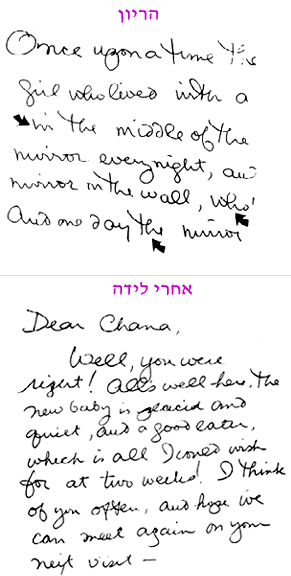 הריון
Once upon a time the
girl who lived with a
in the middle of the
mirror every night, and
mirror in the wall, who'
And one day the mirror
אחרי לידה
Dear Chana,
Well, you were
right! All's well here. The
new baby is placid and
quiet, and a good eater,
which is all I could wish
for at two weeks! I think
of you often, and hope we
can meet again on your
next visit —